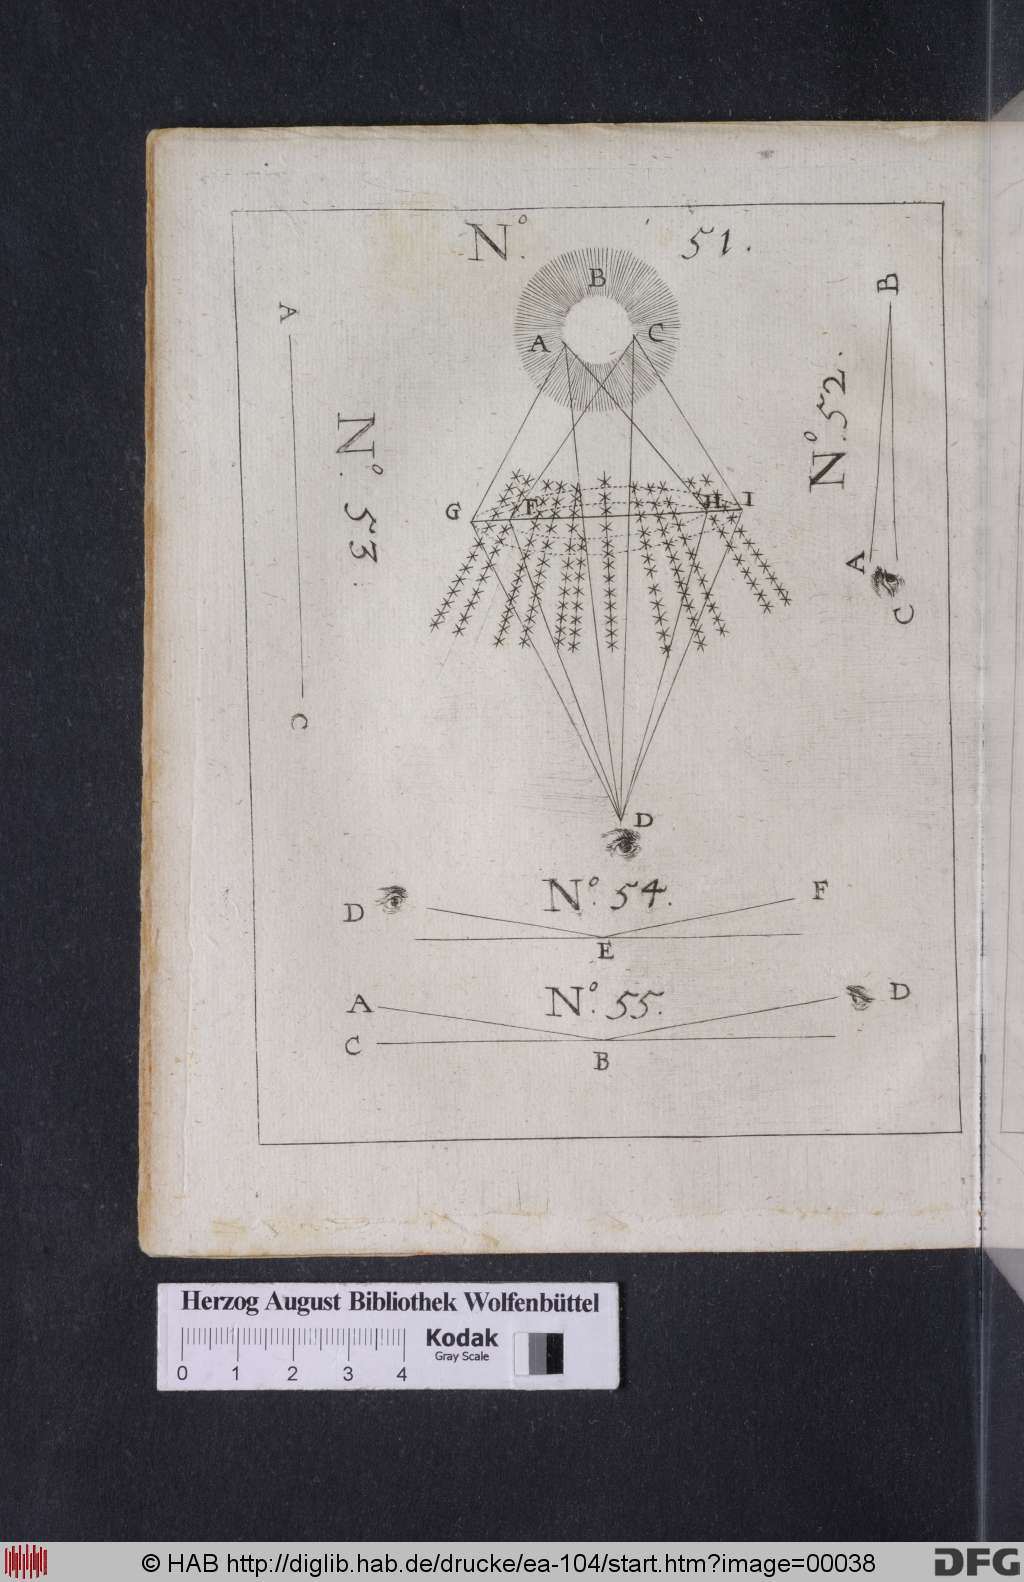 N.º 51.
B
A C
G F H I
D
B
N.º 52.
A
C
A
N.º 53.
C
N.º 54.
D F
E
N.º 55.
A D
C
B
Herzog August Bibliothek Wolfenbüttel
Kodak
Gray Scale
0 1 2 3 4
© HAB http://diglib.hab.de/drucke/ea-104/start.htm?image=00038
DFG